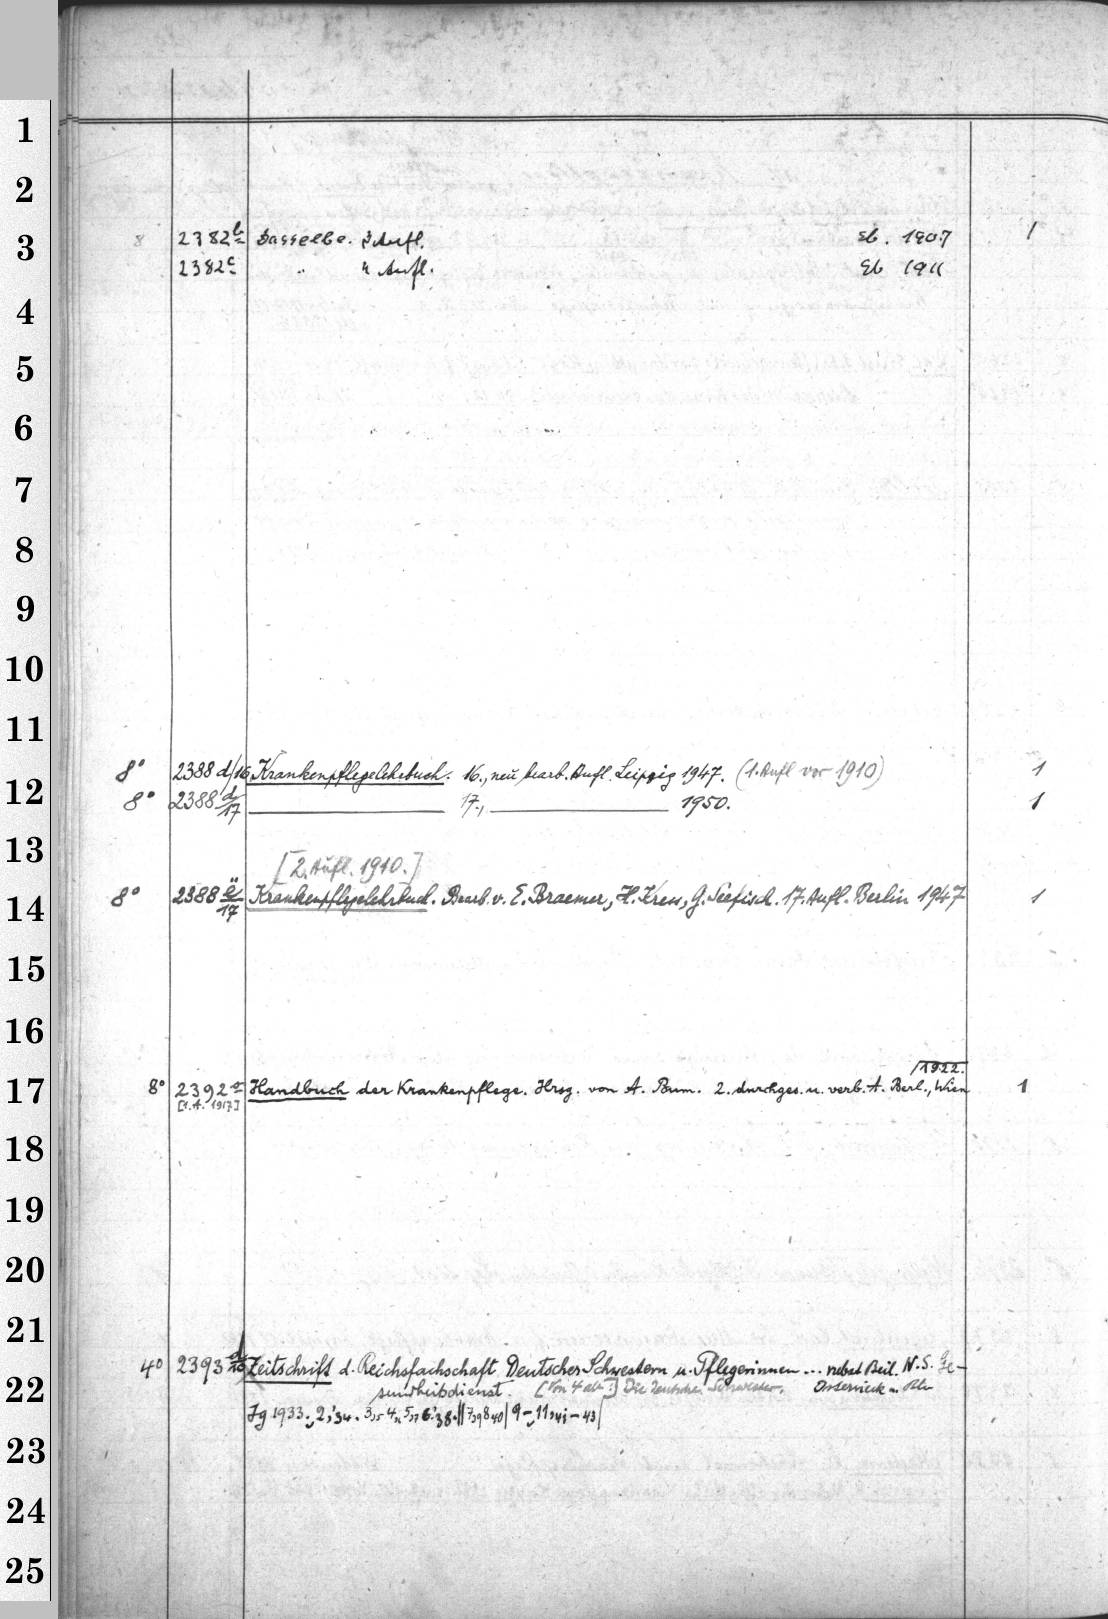 1
2
3
8 2382b Dasselbe. 3 Aufl. Eb. 1907 1
2382c " 4 Aufl. Eb 1911
4
5
6
7
8
9
10
11
8° 2388 d/16 Krankenpflegelehrbuch. 16., neu bearb. Aufl. Leipzig 1947. (1. Aufl vor 1910) 1
12
8° 2388 d/17 17., 1950. 1
13
[2. Aufl. 1910.]
14
8° 2388 ë/17 Krankenpflegelehrbuch. Bearb. v. E. Braemer, H. Kress, G. Seefisch. 17. Aufl. Berlin 1947 1
15
16
1922.
17
8° 2392 a Handbuch der Krankenpflege. Hrsg. von A. Bum. 2. durchges. u. verb. A. Berl., Wien 1
[1. A. 1917]
18
19
20
21
4° 2393 d/10 Zeitschrift d. Reichsfachschaft Deutscher Schwestern u. Pflegerinnen ... nebst Beil. N.S. Ge-
22
sundheitsdienst. [Von 4 ab:] Die Deutsche Schwester. Osterwieck u. Bln
Jg 1933., 2,'34.
23
24
25